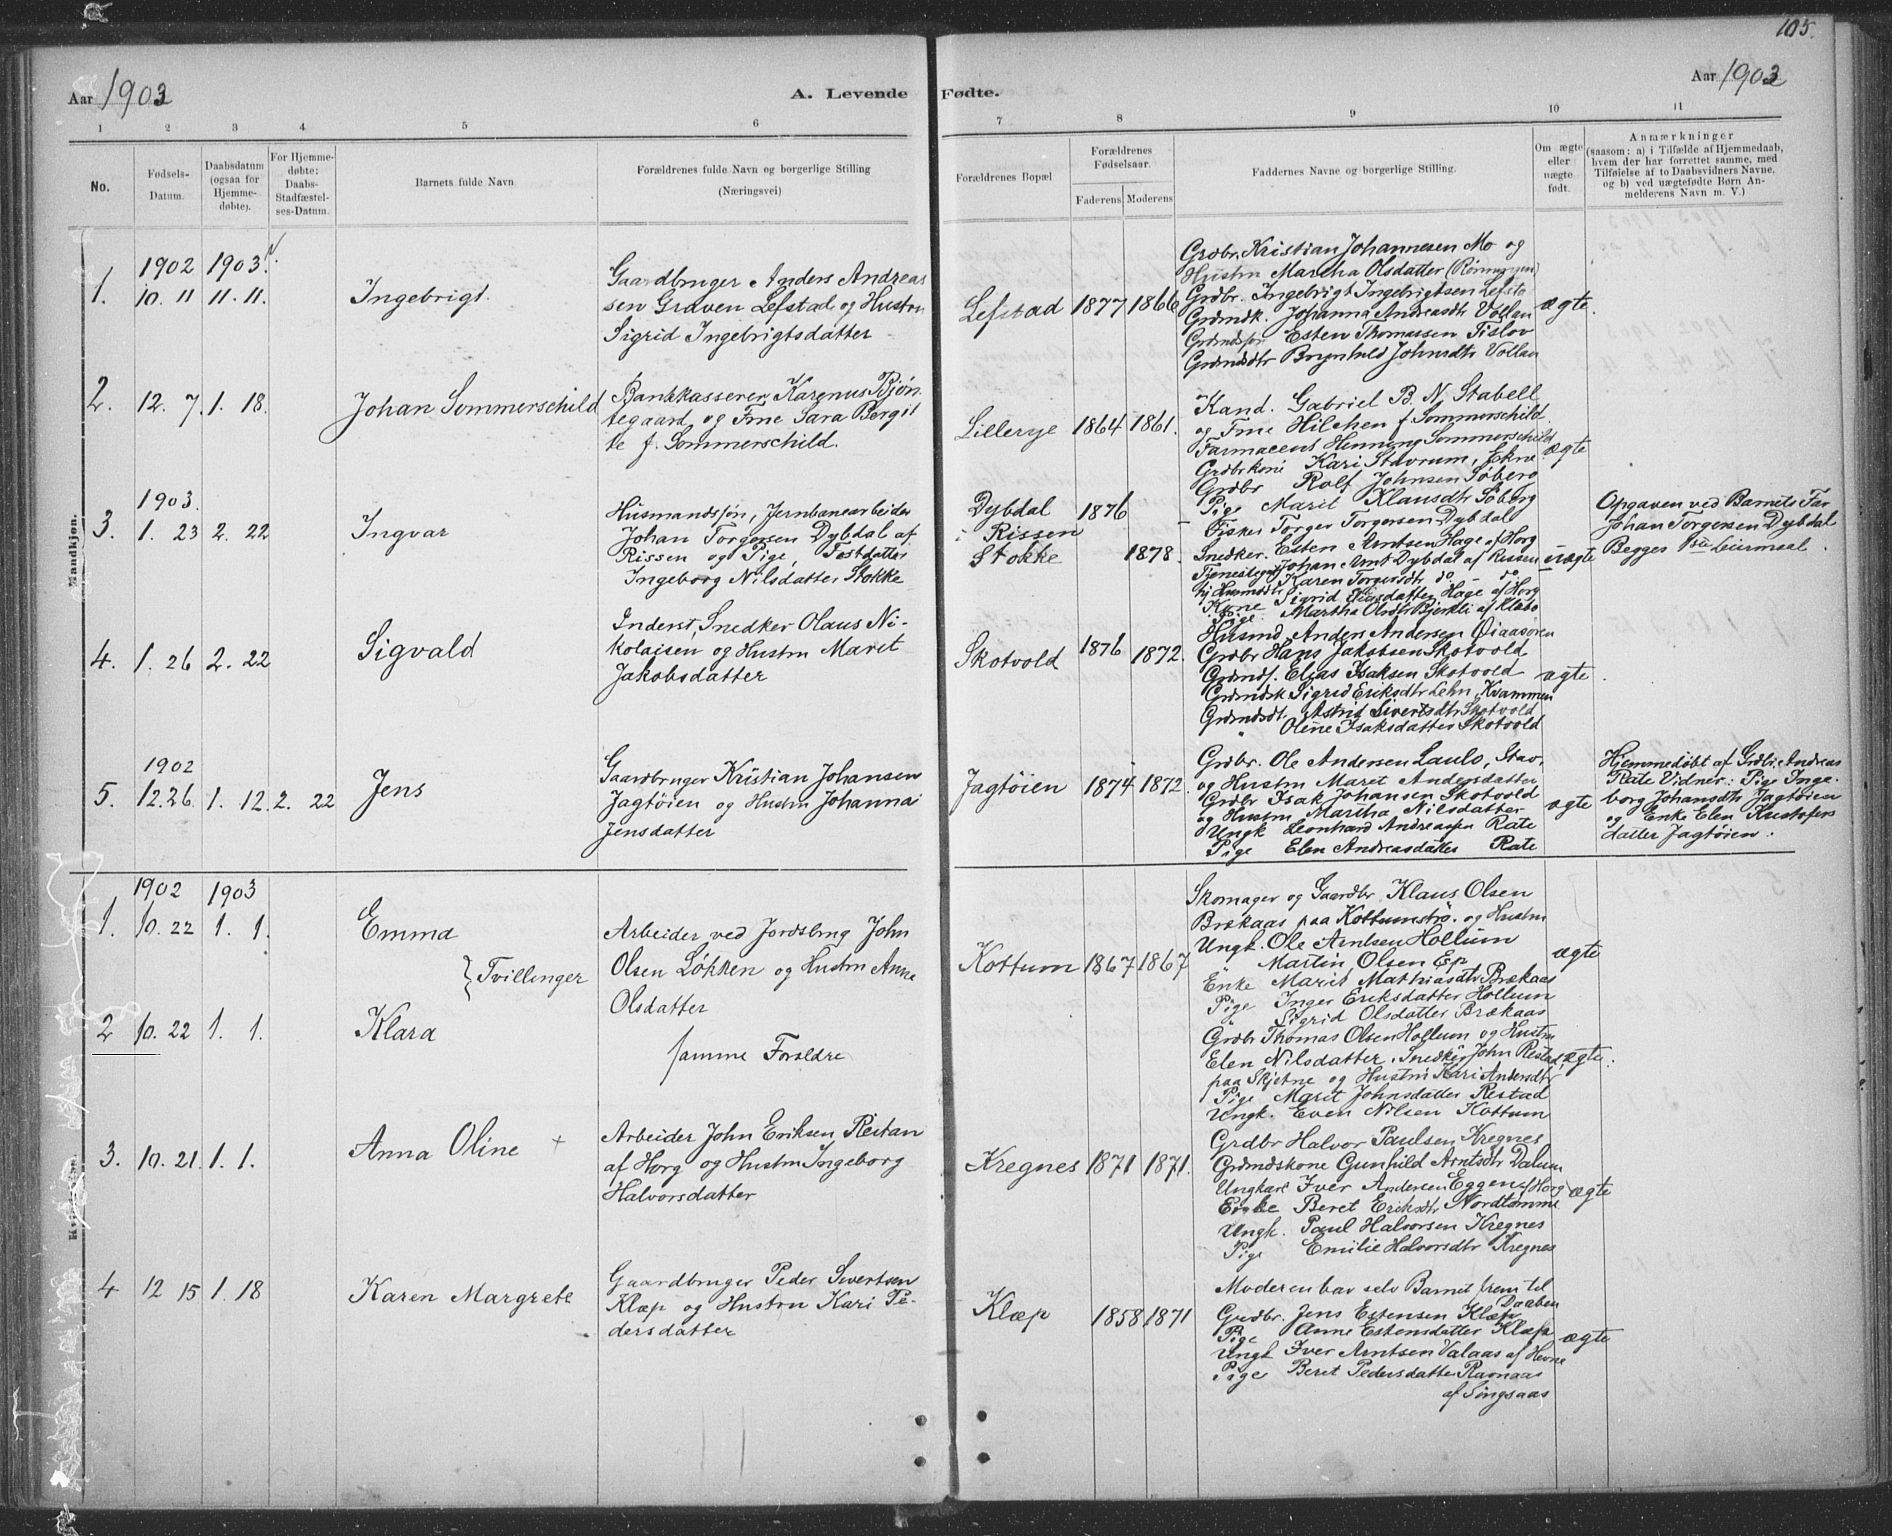 105.
Aar 1903
A. Levende Fødte.
Aar 1903
1 2 3 4 5 6 7 8 9 10 11
No.
Fødsels-Datum.
Daabsdatum (ogsaa for Hjemme-døbte).
For Hjemme-døbte: Daabs-Stadfæstel-ses-Datum.
Barnets fulde Navn
Forældrenes fulde Navn og borgerlige Stilling
(Næringsvei)
Forældrenes Bopæl
Forældrenes Fødselsaar.
Faderens Moderens
Faddernes Navne og borgerlige Stilling
Om ægte eller uægte født.
Anmærkninger
(saasom: a) i Tilfælde af Hjemmedaab,
hvem der har forrettet samme, med
Tilføielse af to Daabsvidners Navne,
og b) ved uægtefødte Børn An-
melderens Navn m. V.)
Mandkjøn.
1902 1903
1. 10. 11 11. 11. Ingebrigt.
Gaardbruger Anders Andreas
sen Graven Lefstad og Hustru
Sigrid Ingebrigtsdatter
Lefstad 1877 1866
Grdbr. Kristian Johannesen Mo og
Hustru Martha Olsdatter
Grdbr. Ingebrigt Ingebrigtsen Lefsta
Grdmdk. Johanna Andreasdtr Vollan
Esten Thomassen Tislov
Grdmdsdtr Brynhild Johnsdtr Vollan
ægte.
2. 12. 7. 1. 18. Johan Sommerschild
Bankkasserer Karenus Bjøn
tegaard og Frue Sara Bergit
te f. Sommerschild.
Lillerye 1864 1861.
Kand. Gabriel B. N. Stabell
og Frue Hilchen f. Sommerschild.
Farmaceut Henning Sommerschild
Grdbrkone Kari Stavrum, Ekne
Grdbr Rolf Johnsen Søberg
Pige Marit Klausdtr Søberg
ægte
1903.
3. 1. 23 2. 22 Ingvar
Husmandssøn, Jernbanearbeider
Johan Torgersen Dybdal af
Rissen og Pige, Fostdatter
Ingeborg Nilsdatter Stokke
Dybdal
i Rissen
Stokke
1876 1878.
Fisker Torger Torgersen Dybdal
Snedker. Esten Arntsen Hage af Horg
Johan Arnt Dybdal af Rissen
Karen Torgersdtr do - do
Kone Sigrid Hage af Horg
Pige. Martha Olsdtr Bjerkli af Klæbo
uægte
Opgaven ved Barnets Far
Johan Torgersen Dybdal
Begges 1ste Leiermaal.
4. 1. 26 2. 22 Sigvald
Inderst, Snedker Olaus Ni-
kolaisen og Hustru Maret
Jakobsdatter
Skotvold 1876 1872.
Husmd. Anders Andersen Øiaasøren
Grdbr Hans Jakobsen Skotvold
Grdmds. Elias Isaksen Skotvold
Grdmdsk Sigrid Eriksdtr Lehn, Kvammen
Grdmdsdt. Astrid Sivertsdtr Skotvold
" Oline Isaksdatter Skotvold
ægte.
1902
5. 12. 26. 1. 12. 2. 22 Jens
Gaardbruger Kristian Johansen
Jagtøien og Hustru Johanna
Jensdatter
Jagtøien 1874 1872.
Grdbr. Ole Andersen Laulo, Stav,
og Hustru Maret Andersdatter
Grdbr Isak Johansen Skotvold
og Hustru Martha Nilsdatter
Ungk Leonhard Andreassen Rate
Pige Elen Andreasdatter Rate
ægte
Hjemmedøbt af Grdbr. Andreas
Rate Vidner: Pige Inge-
borg Johansdtr Jagtøien
og Enke Elen Kristofers
datter Jagtøien.
1902 1903
1. 10. 22 1. 1. Emma
} Tvillinger
Arbeider ved Jordsbrug John
Olsen Løkken og Hustru Anne
Olsdatter
Kottum 1867 1867
Skomager og Gaardbr Klaus Olsen
Brækaas paa Kottumstrø. og Hustru
Ungk. Ole Arntsen Hollum
Martin Olsen Ep
Enke Marit Mathiasdtr Brækaas
Pige Inger Eriksdatter Hollum
Sigrid Olsdatter Brækaas
ægte
2 10. 22 1. 1. Klara
samme Forældre
Grdbr Thomas Olsen Hollum og Hustru
Elen Nilsdatter. Snedker John Restad
paa Skjetne og Hustru Kari Andersdtr,
Pige Marit Johnsdatter Restad
Ungk. Even Nilsen Kottum
ægte.
3. 10. 21. 1. 1. Anna Oline +
Arbeider John Eriksen Restan
af Horg og Hustru Ingeborg
Halvorsdatter
Kregnes 1871 1871.
Grdbr Halvor Paulsen Kregnes
Grdmdskone Gunhild Arntsdtr Dalum
Ungkarl Iver Andersen Eggen af Horg
Enke Beret Eriksdtr Nordtømme
Ungk. Paul Halvorsen Kregnes
Pige Emilie Halvorsdtr Kregnes
ægte
4 12 15 1. 18 Karen Margrete
Gaardbruger Peder Sivertsen
Klæp og Hustru Kari Pe-
dersdatter
Klæp 1858 1871
Moderen bar selv Barnet frem til
Daaben
Grdbr. Jens Estensen Klæp
Pige Anne Estensdatter Klæp
Ungk Iver Arntsen Valaas af Hevne
Pige Beret Pedersdatter Ramaas
af Singsaas
ægte